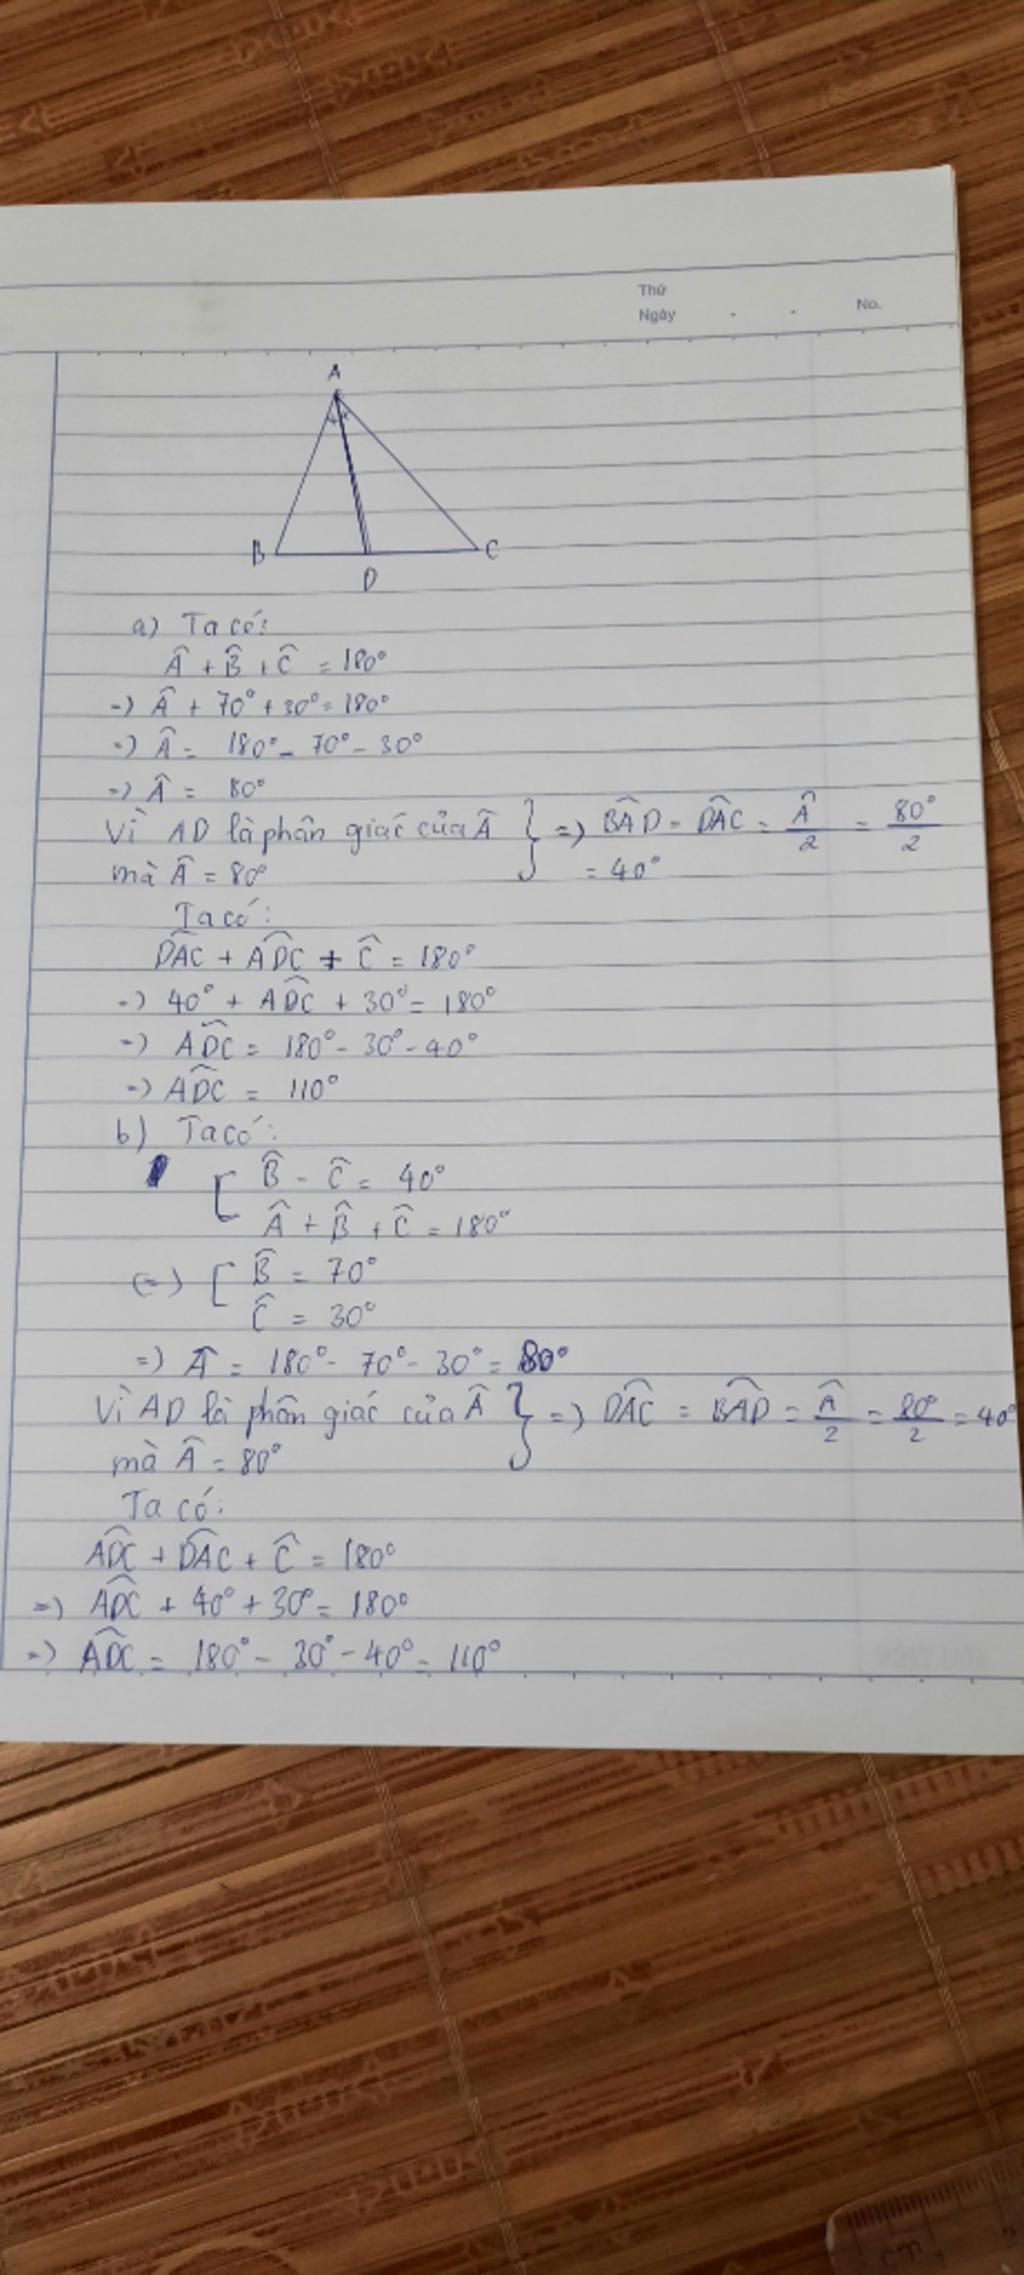 Thứ
Ngày . . No.
A
B
C
D
a) Ta có:
Â + B̂ + Ĉ = 180°
=) Â + 70° + 30° = 180°
=) Â = 180° - 70° - 30°
=) Â = 80°
Vì AD là phân giác của Â } =) BÂD = DÂC = Â/2 = 80°/2
mà Â = 80° = 40°
Ta có:
DÂC + AD̂C + Ĉ = 180°
=) 40° + AD̂C + 30° = 180°
=) AD̂C = 180° - 30° - 40°
=) AD̂C = 110°
b) Ta có:
[ B̂ - Ĉ = 40°
Â + B̂ + Ĉ = 180°
(=) [ B̂ = 70°
Ĉ = 30°
=) Â = 180° - 70° - 30° = 80°
Vì AD là phân giác của Â } =) DÂC = BÂD = Â/2 = 80°/2 = 40°
mà Â = 80°
Ta có:
AD̂C + DÂC + Ĉ = 180°
=) AD̂C + 40° + 30° = 180°
=) AD̂C = 180° - 30° - 40° = 110°